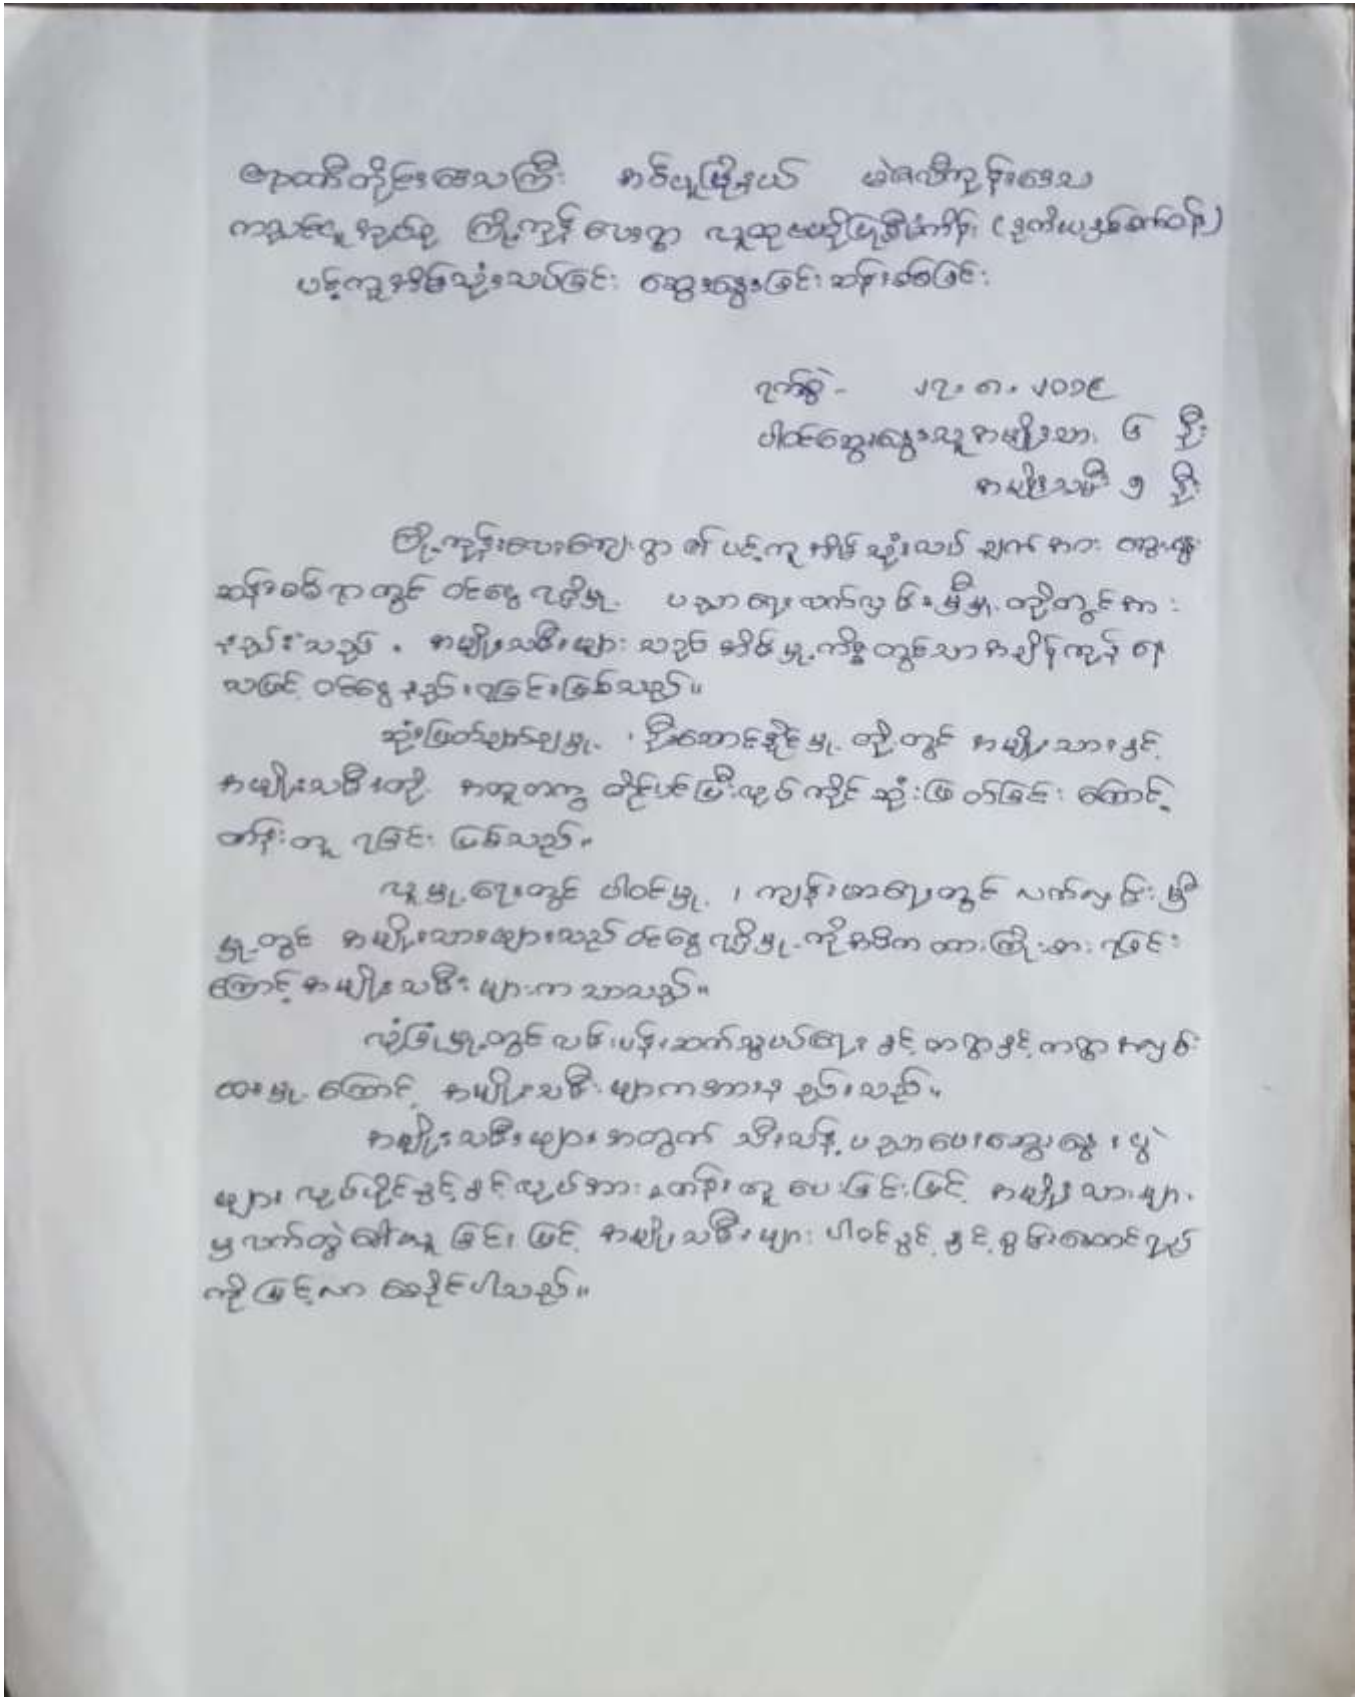 ဧရာဝတီတိုင်းဒေသကြီး ငပုတောမြို့နယ် မဲဇလီကုန်းဒေသ
ကညင်ငူ အုပ်စု ကြို့ကုန်းလေးရွာ လူထုဗဟိုပြုစီမံကိန်း (ဒုတိယနှစ်တစ်ဝန်း)
ပင့်ကူအိမ်သုံးသပ်ခြင်း ဆွေးနွေးခြင်းဆန်းစစ်ခြင်း
ရက်စွဲ - ၂၇.၈.၂၀၁၉
ပါဝင်ဆွေးနွေးသူ အမျိုးသား ၆ ဦး
အမျိုးသမီး ၅ ဦး
ကြို့ကုန်းလေးကျေးရွာ ၏ ပင့်ကူအိမ် သုံးသပ်ချက် အား ဆွေးနွေး
ဆန်းစစ်ရာတွင် ဝင်ငွေရရှိမှု၊ ပညာရေးလက်လှမ်းမှီမှု တို့တွင်အား
နည်းသည်။ အမျိုးသမီးများ သည် အိမ်မှု့ကိစ္စတွင်သာ အချိန်ကုန်နေ
သဖြင့် ဝင်ငွေနည်းရခြင်းဖြစ်သည်။
ဆုံးဖြတ်ချက်ချမှု၊ ဦးဆောင်နိုင်မှု တို့တွင် အမျိုးသားနှင့်
အမျိုးသမီးတို့ အတူတကွ တိုင်ပင်ပြီးလုပ်ကိုင်ဆုံးဖြတ်ခြင်း ကြောင့်
တန်းတူ ရခြင်း ဖြစ်သည်။
လူမှု့ရေးတွင် ပါဝင်မှု၊ ကျန်းမာရေးတွင် လက်လှမ်းမှီ
မှု့တွင် အမျိုးသားများသည် ဝင်ငွေရရှိမှု့ကိုအဓိကထားကြိုးစားရခြင်း
ကြောင့် အမျိုးသမီးများက သာသည်။
လုံခြုံမှု့တွင် လမ်းပန်းဆက်သွယ်ရေးနှင့် တရွာနှင့်တရွာ အလှမ်း
ဝေးမှု့ ကြောင့် အမျိုးသမီးများကအားနည်းသည်။
အမျိုးသမီးများအတွက် သီးသန့်ပညာပေးဆွေးနွေးပွဲ
များ၊ လုပ်ပိုင်ခွင့်နှင့်လုပ်အား ခတန်းတူပေးခြင်းဖြင့် အမျိုးသားများ
မှ လက်တွဲခေါ်ယူခြင်းဖြင့် အမျိုးသမီးများ ပါဝင်ခွင့်နှင့် စွမ်းဆောင်ရည်
ကိုမြင့်လာစေနိုင်ပါသည်။